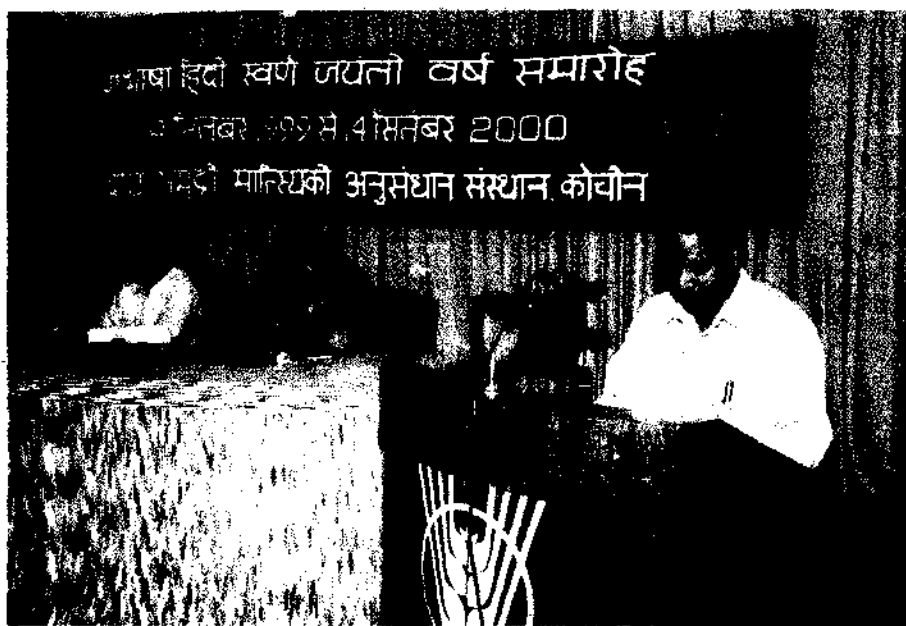 हिंदी स्वर्ण जयंती वर्ष समारोह
से 14 सितंबर 2000
मात्स्यिकी अनुसंधान संस्थान, कोचीन